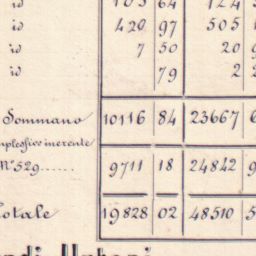 id 64 124
id 420 97 505
id 7 50 20
id 79 2
Sommano 10116 84 23667 6
mplessivo inerente
N° 529...... 9711 18 24842 9
Totale 19828 02 48510 5